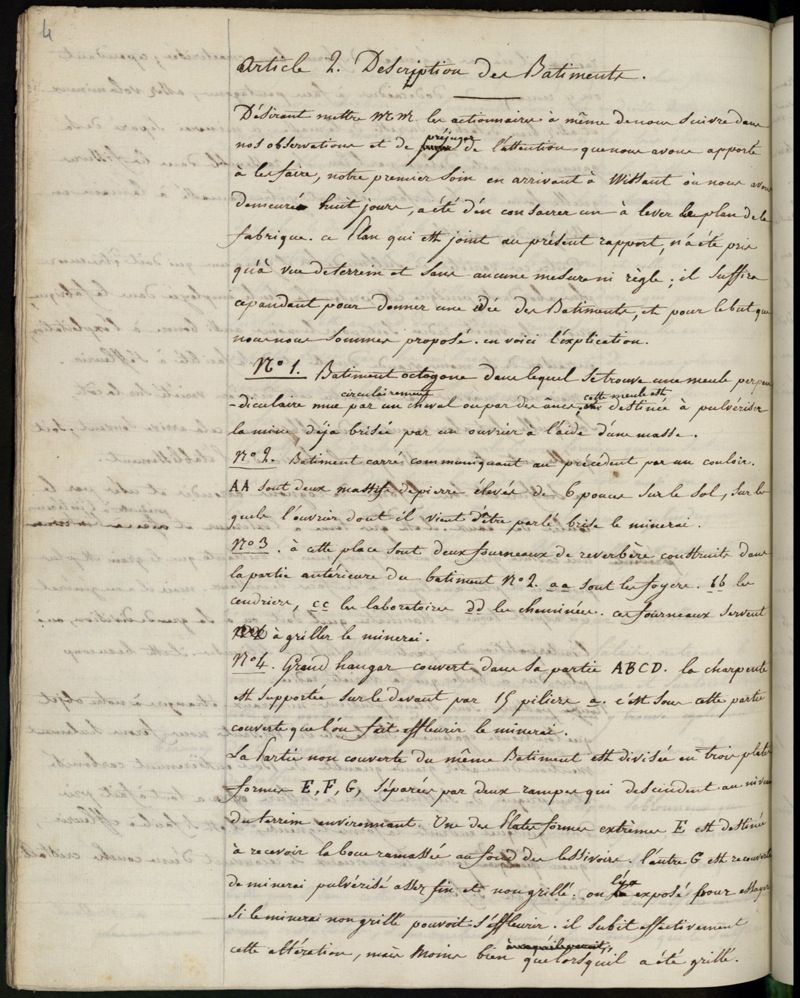 4
Article 2. Description des Batiments.
Désirant mettre M.M. les actionnaires à même de nous suivre dans
nos observations et de préjuger de l'attention que nous avons apporté
à les faire, notre premier soin en arrivant à Wissant où nous avons
demeuré huit jours, a été d'en consacrer un à lever le plan de la
fabrique. ce Plan qui est joint au présent rapport, n'a été pris
qu'à vue de terrein et sans aucune mesure ni règle ; il suffira
cependant pour donner une idée des Batiments, et pour le but que
nous nous sommes proposé. en voici l'explication.
N° 1. Batiment octogone dans lequel se trouve une meule perpen
-diculaire mue circulairement par un cheval ou par des ânes, cette meule est destinée à pulvériser
la mine déja brisée par un ouvrier à l'aide d'une masse.
N° 2. Bâtiment carré communiquant au précédent par un couloir.
AA sont deux massifs de pierre élevés de 6 pouces sur le sol, sur les
quels l'ouvrier dont il vient d'être parlé brise le minerai.
N° 3. à cette place sont deux fourneaux de reverbère construits dans
la partie antérieure du batiment N° 2. aa sont les foyers. bb les
cendriers, cc les laboratoires dd les cheminées. ces fourneaux servent
à griller le minerai.
N° 4. Grand hangar couvert dans sa partie ABCD. la charpente
est supportée sur le devant par 15 piliers a. c'est sous cette partie
couverte que l'on fait effleurir le minerai.
La Partie non couverte du même Batiment est divisée en trois plates
formes E, F, G, séparées par deux rampes qui descendent au niveau
du terrein environnant. Une des Plates formes extrêmes E est destinée
à recevoir la boue ramassée au fond des lessivoirs. l'autre G est recouverte
de minerai pulvérisé assez fin et non grillé. on l'y a exposé pour essayer
si le minerai non grillé pouvoit s'effleurir. il subit effectivement
cette altération, mais moins bien que lorsqu'il a été grillé.